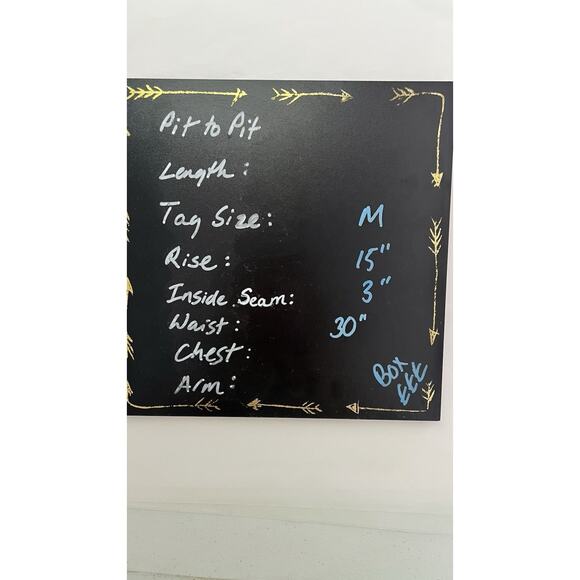 Pit to Pit
Length:
Tag Size: M
Rise: 15"
Inside Seam: 3"
Waist: 30"
Chest:
Arm:
BOX
EEE